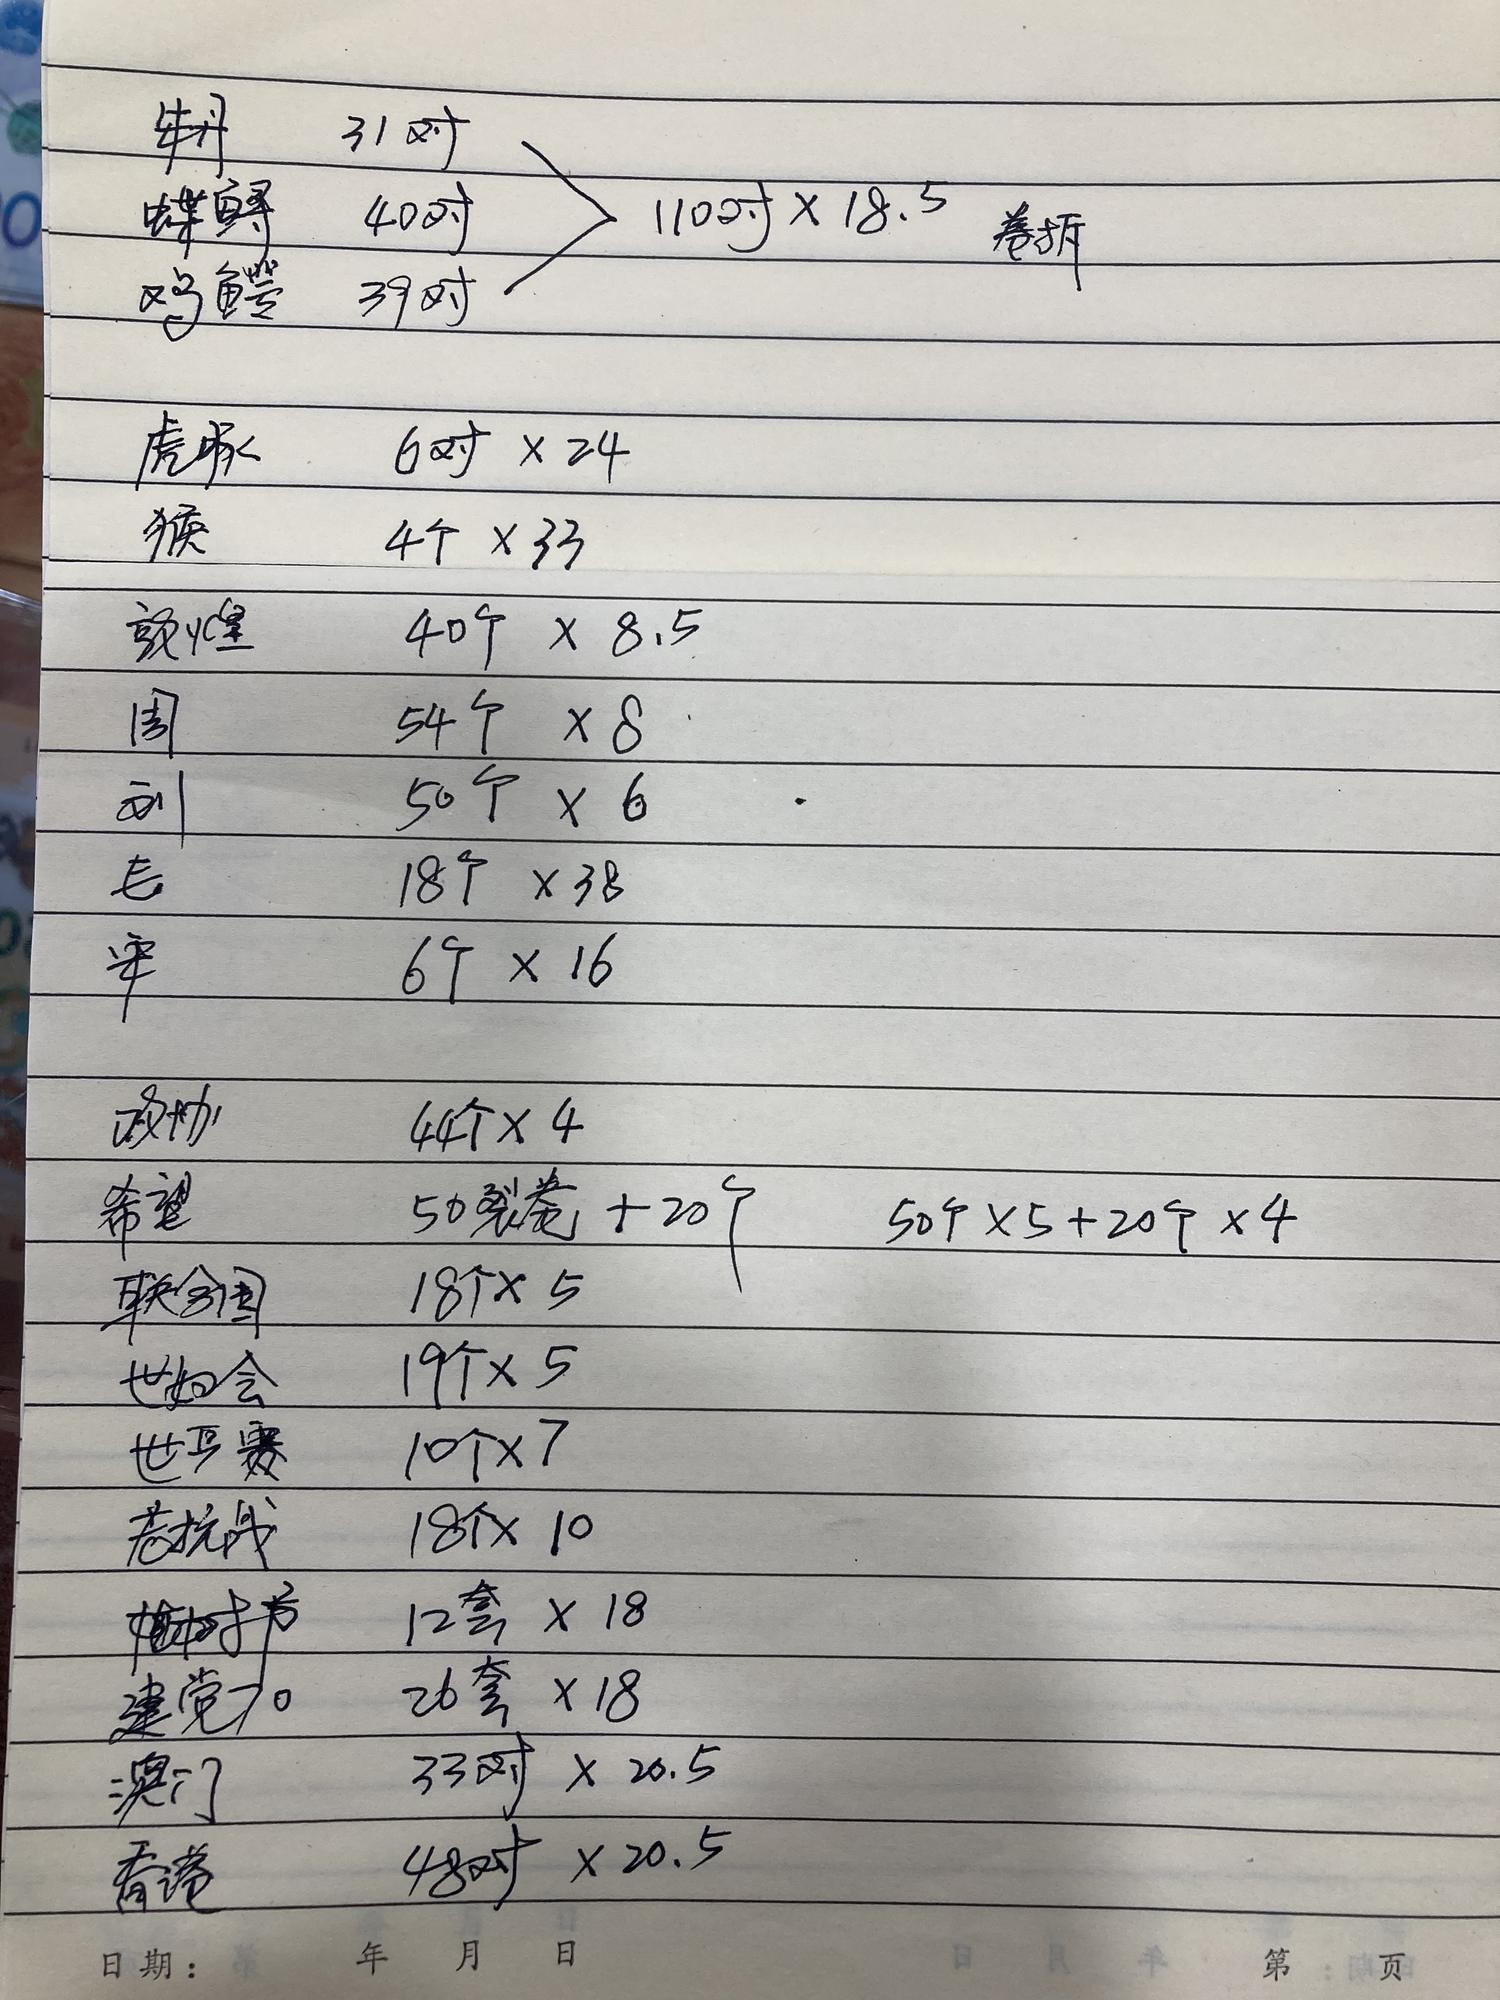 牡丹 31对
蝶鲟 40对 110对 × 18.5 卷拆
鸡鳄 39对
虎豚 6对 × 24
猴 4个 × 33
敦煌 40个 × 8.5
周 54个 × 8
刘 50个 × 6
毛 18个 × 38
宋 6个 × 16
政协 44个 × 4
希望 50裂卷 + 20个 50个 × 5 + 20个 × 4
联合国 18个 × 5
世妇会 19个 × 5
世乒赛 10个 × 7
老抗战 18个 × 10
植树节 12套 × 18
建党70 26套 × 18
澳门 33对 × 20.5
香港 48对 × 20.5
日期: 年 月 日 第 页